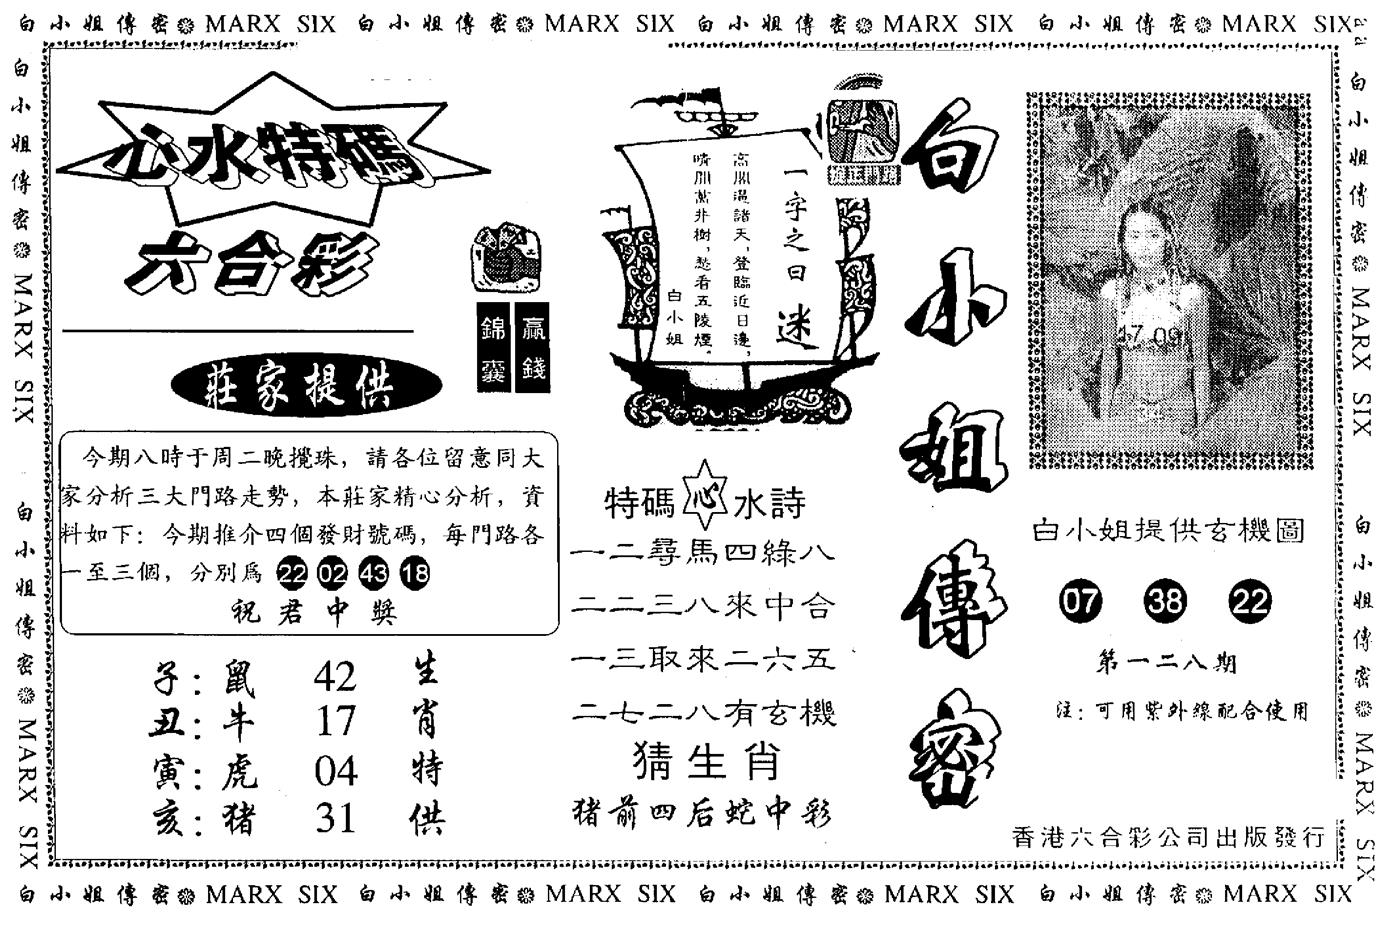 白小姐傳密 MARX SIX 白小姐傳密 MARX SIX 白小姐傳密 MARX SIX 白小姐傳密 MARX SIX
白小姐傳密 MARX SIX 白小姐傳密 MARX SIX
心水特碼
六合彩
贏錢
錦囊
莊家提供
今期八時于周二晚攪珠，請各位留意同大
家分析三大門路走勢，本莊家精心分析，資
料如下：今期推介四個發財號碼，每門路各
一至三個，分別爲 22 02 43 18
祝君中獎
子：鼠 42 生
丑：牛 17 肖
寅：虎 04 特
亥：豬 31 供
一字之曰 迷
高閣逼諸天，登臨近日邊，
晴開萬井樹，愁看五陵煙。
白小姐
特碼心水詩
一二尋馬四綠八
二二三八來中合
一三取來二六五
二七二八有玄機
猜生肖
猪前四后蛇中彩
白小姐傳密
17 09
白小姐提供玄機圖
07 38 22
第一二八期
注：可用紫外線配合使用
香港六合彩公司出版發行
白小姐傳密 MARX SIX 白小姐傳密 MARX SIX
白小姐傳密 MARX SIX 白小姐傳密 MARX SIX 白小姐傳密 MARX SIX 白小姐傳密 MARX SIX